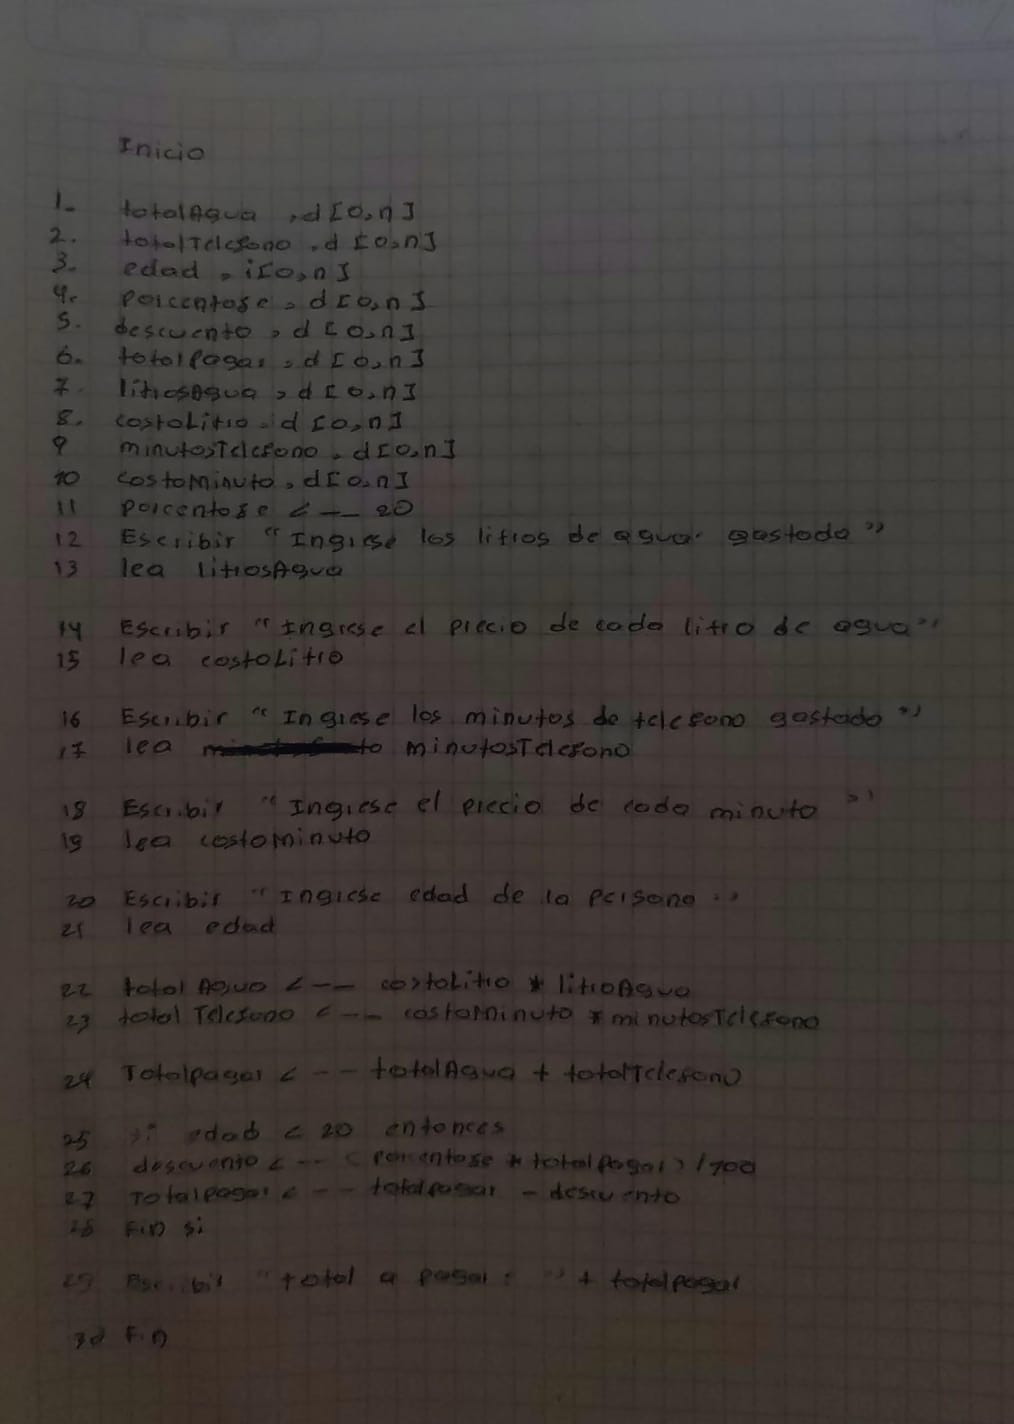 Inicio
1- totalAgua , d [0,n]
2. totalTelefono , d [0,n]
3. edad , i[0,n]
4. porcentaje , d [0,n]
5. descuento , d [0,n]
6. totalPagar , d [0,n]
7. litrosAgua , d [0,n]
8. costoLitro . d [0,n]
9 minutosTelefono , d[0,n]
10 costoMinuto , d[0,n]
11 porcentaje <-- 20
12 Escribir "Ingrese los litros de agua gastado"
13 lea litrosAgua
14 Escribir "Ingrese el precio de cada litro de agua"
15 lea costoLitro
16 Escribir "Ingrese los minutos de telefono gastado"
17 lea minutosTelefono
18 Escribir "Ingrese el precio de cada minuto"
19 lea costominuto
20 Escribir "Ingrese edad de la persona"
21 lea edad
22 total Agua <-- costoLitro * litroAgua
23 total Telefono <-- costoMinuto * minutosTelefono
24 Totalpagar <-- totalAgua + totalTelefono
25 si edad < 20 entonces
26 descuento <-- (porcentaje * totalPagar) / 100
27 Totalpagar <-- totalpagar - descuento
28 Fin si
29 Escribir "total a pagar: " + totalpagar
30 Fin